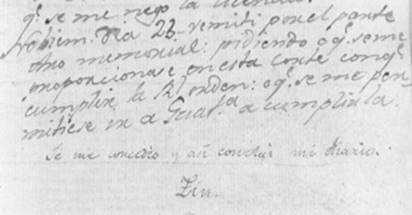 q.e se me nego la licencia.
Nobiem. Dia 22. remiti por el parte
otro memorial: pidiendo o q.e se me
proporcionase en esta corte con q.e
cumplir la R.l orden: o q.e se me per-
mitiese ir a Guat.a a cumplirla.
Se me concedio y asi conclui mi diario.
Fin.